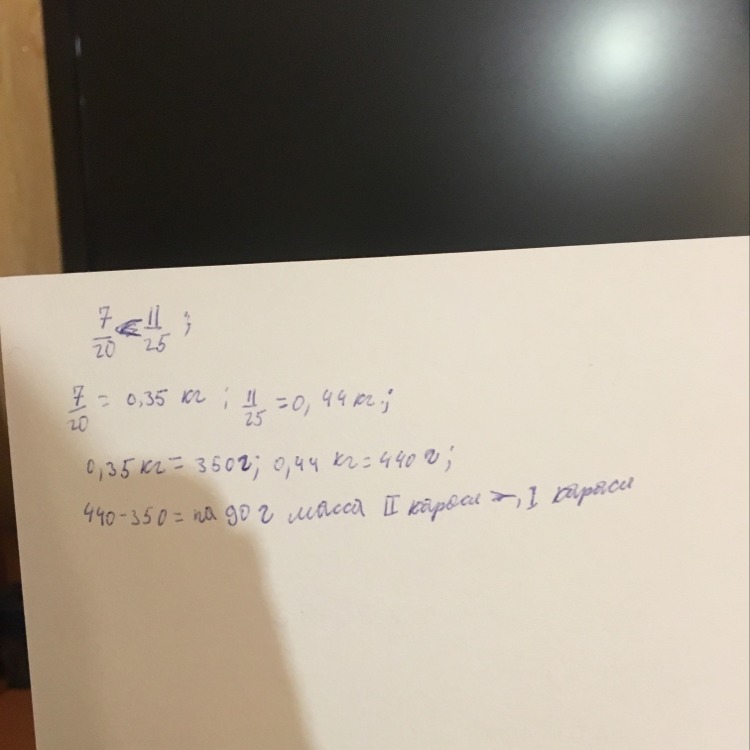 7/20 < 11/25 ;
7/20 = 0,35 кг ; 11/25 = 0,44 кг.;
0,35 кг = 350 г; 0,44 кг = 440 г;
440-350 = на 90 г масса II карася >, I карася